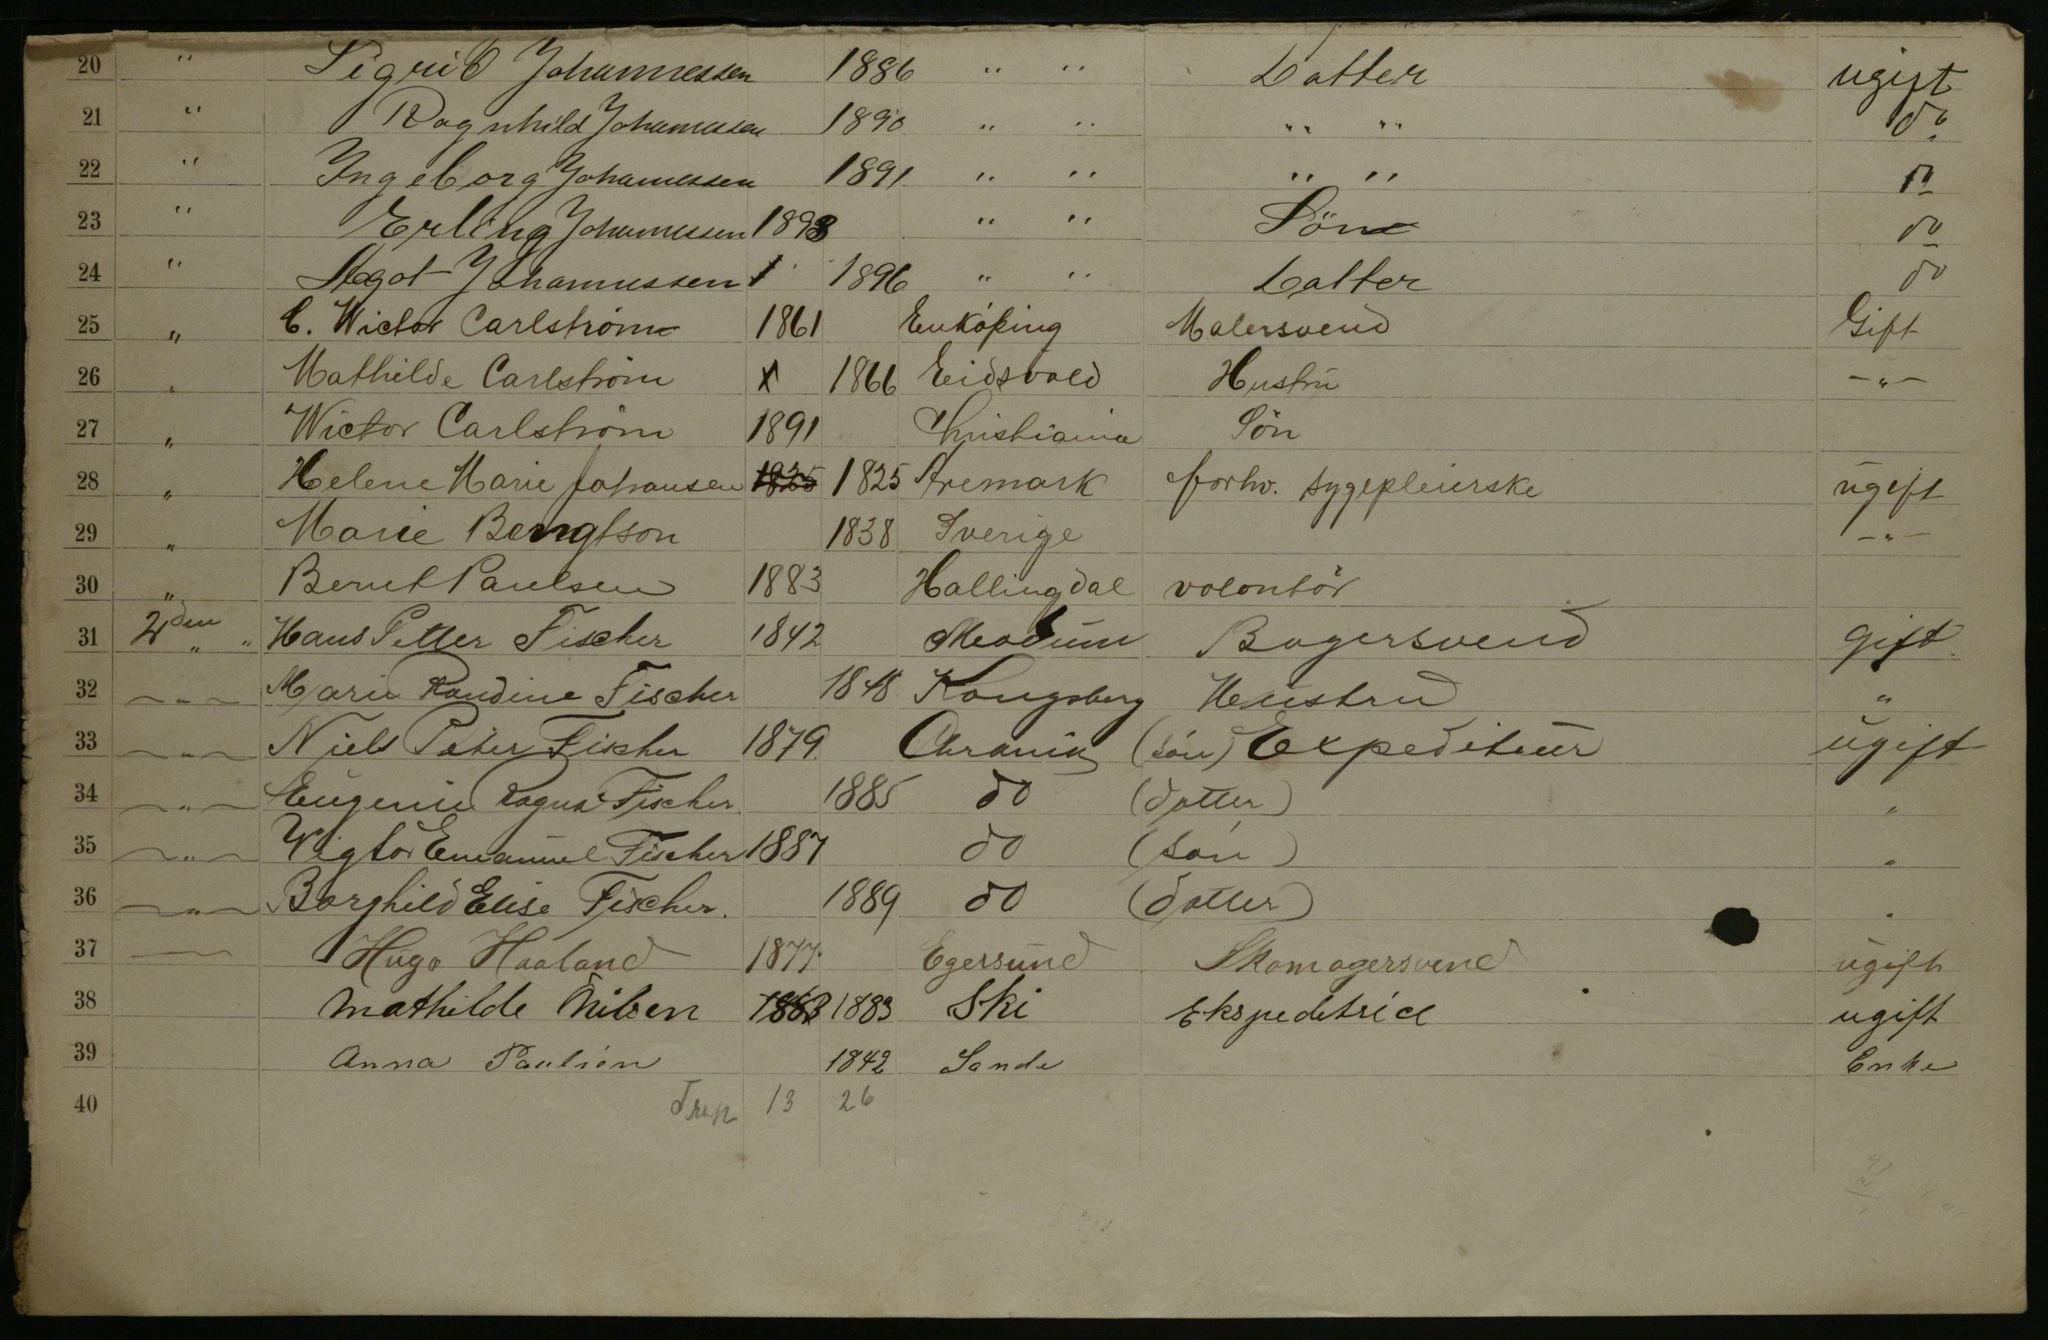 20 " Sigrid Johannessen 1886 " " Datter ugift
21 " Ragnhild Johannessen 1890 " " " " do
22 " Ingeborg Johannessen 1891 " " " " do
23 " Erling Johannessen 1893 " " Sön do
24 " Agot Johannessen 1896 " " Datter do
25 " C. Wictor Carlström 1861 Enköping Malersvend Gift
26 " Mathilde Carlström x 1866 Eidsvold Hustru -"-
27 " Wictor Carlström 1891 Christiania Sön
28 " Helene Marie Johansen 1825 1825 Aremark forhv. sygepleierske ugift
29 " Marie Bengtson 1838 Sverige -"-
30 " Bernt Paulsen 1883 Hallingdal volontör
31 2den " " Hans Petter Fischer 1842 Modum Bagersvend gift
32 -"- Marie Randine Fischer 1848 Kongsberg Hustru "
33 -"- Niels Peter Fischer 1879 Chrania (sön) Expediteur ugift
34 -"- Eugenie Ragna Fischer. 1885 do (datter) "
35 -"- Wigtor Emanuel Fischer 1887 do (sön) "
36 -"- Borghild Elise Fischer. 1889 do (datter) "
37 - Hugo Haaland 1877 Egersund Skomagersvend ugift
38 Mathilde Nilsen 1883 1883 Ski Ekspeditrice ugift
39 Anna Paulsen 1842 Sande Enke
40 13 26